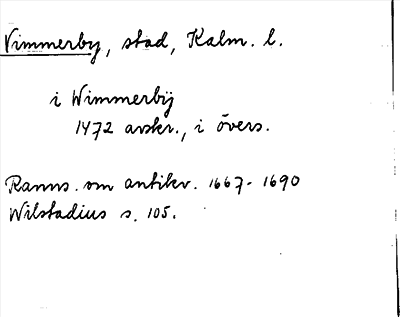 Vimmerby, stad, Kalm. l.
i Wimmerbÿ
1472 avskr., i övers.
Ranns. om antikv. 1667-1690
Wilstadius s. 105.